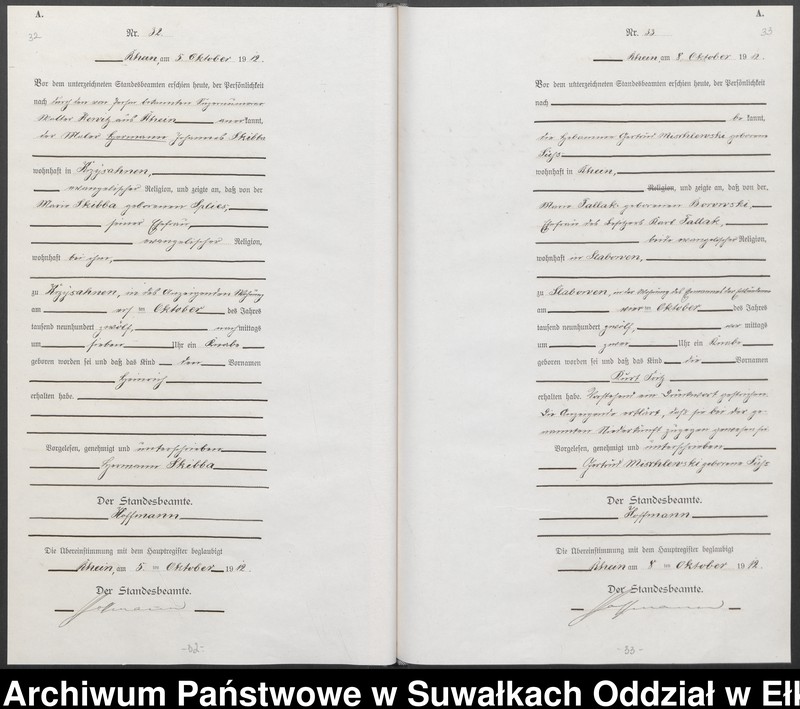 A.
32
Nr. 32
Rhein, am 5 Oktober 1912.
Vor dem unterzeichneten Standesbeamten erschien heute, der Persönlichkeit
nach durch den von Person bekannten
Walter aus Rhein anerkannt,
der Maler Hermann Johannes Skibba
wohnhaft in Krzysahnen,
evangelischer Religion, und zeigte an, daß von der
Marie Skibba geborenen Splies,
seiner Ehefrau
evangelischer Religion,
wohnhaft bei ihm,
zu Krzysahnen, in des Anzeigenden Wohnung
am ten Oktober des Jahres
tausend neunhundert zwölf, nachmittags
um sieben Uhr ein Knabe
geboren worden sei und daß das Kind den Vornamen
Heinrich
erhalten habe.
Vorgelesen, genehmigt und unterschrieben
Hermann Skibba
Der Standesbeamte.
Hoffmann
Die Übereinstimmung mit dem Hauptregister beglaubigt
Rhein, am 5 ten Oktober 1912.
Der Standesbeamte.
Hoffmann
-32-
A.
33
Nr. 33
Rhein, am 8 Oktober 1912.
Vor dem unterzeichneten Standesbeamten erschien heute, der Persönlichkeit
nach
be kannt,
die Hebamme Gertrud Mischlewski geborene
Fuchs
wohnhaft in Rhein,
Religion, und zeigte an, daß von der,
Marie Tallak geborenen Borowski,
Ehefrau des Besitzers Karl Tallak,
beide evangelischer Religion,
wohnhaft in Slabowen,
zu Slabowen, in der Wohnung des Ehemannes der
am vier ten Oktober des Jahres
tausend neunhundert zwölf, vor mittags
um zwei Uhr ein Knabe
geboren worden sei und daß das Kind die Vornamen
Kurt Fritz
erhalten habe. Vorstehend ein Druckwort gestrichen.
Die Anzeigende erklärt, daß sie bei der ge-
nannten Niederkunft zugegen gewesen sei
Vorgelesen, genehmigt und unterschrieben
Gertrud Mischlewski geborene Fuchs
Der Standesbeamte.
Hoffmann
Die Übereinstimmung mit dem Hauptregister beglaubigt
Rhein am 8 ten Oktober 1912.
Der Standesbeamte.
Hoffmann
-33-
Archiwum Państwowe w Suwałkach Oddział w Ełk